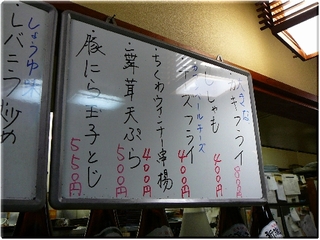 カキフライ
ししゃも 400円
チーズ
フライ 400円
・ちくわウインナー串揚 400円
・舞茸天ぷら 500円
・豚にら玉子とじ 550円
しょうゆ味
・レバニラ炒め